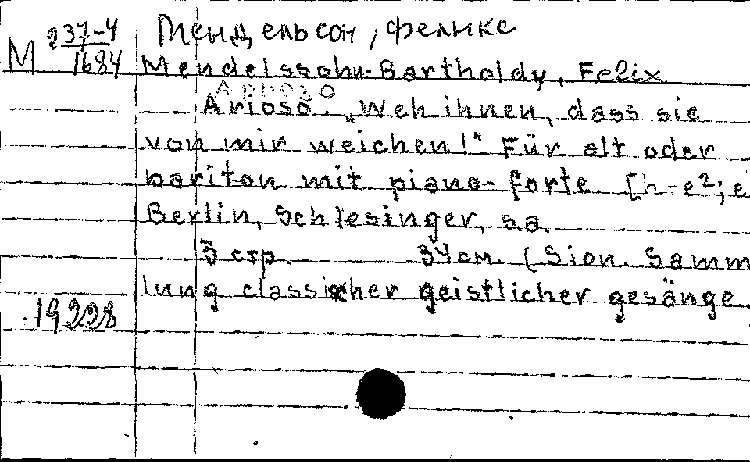 М 237-4/1684 Мендельсон, Феликс
Mendelssohn-Bartholdy, Felix
Ариозо
Arioso. „Weh ihnen, dass sie
von mir weichen!" Für alt oder
bariton mit piano-forte. [h-e²; e
Berlin, Schlesinger, s.a.
3 стр. 34 см. (Sion. Samm
lung classischer geistlicher gesänge
19228